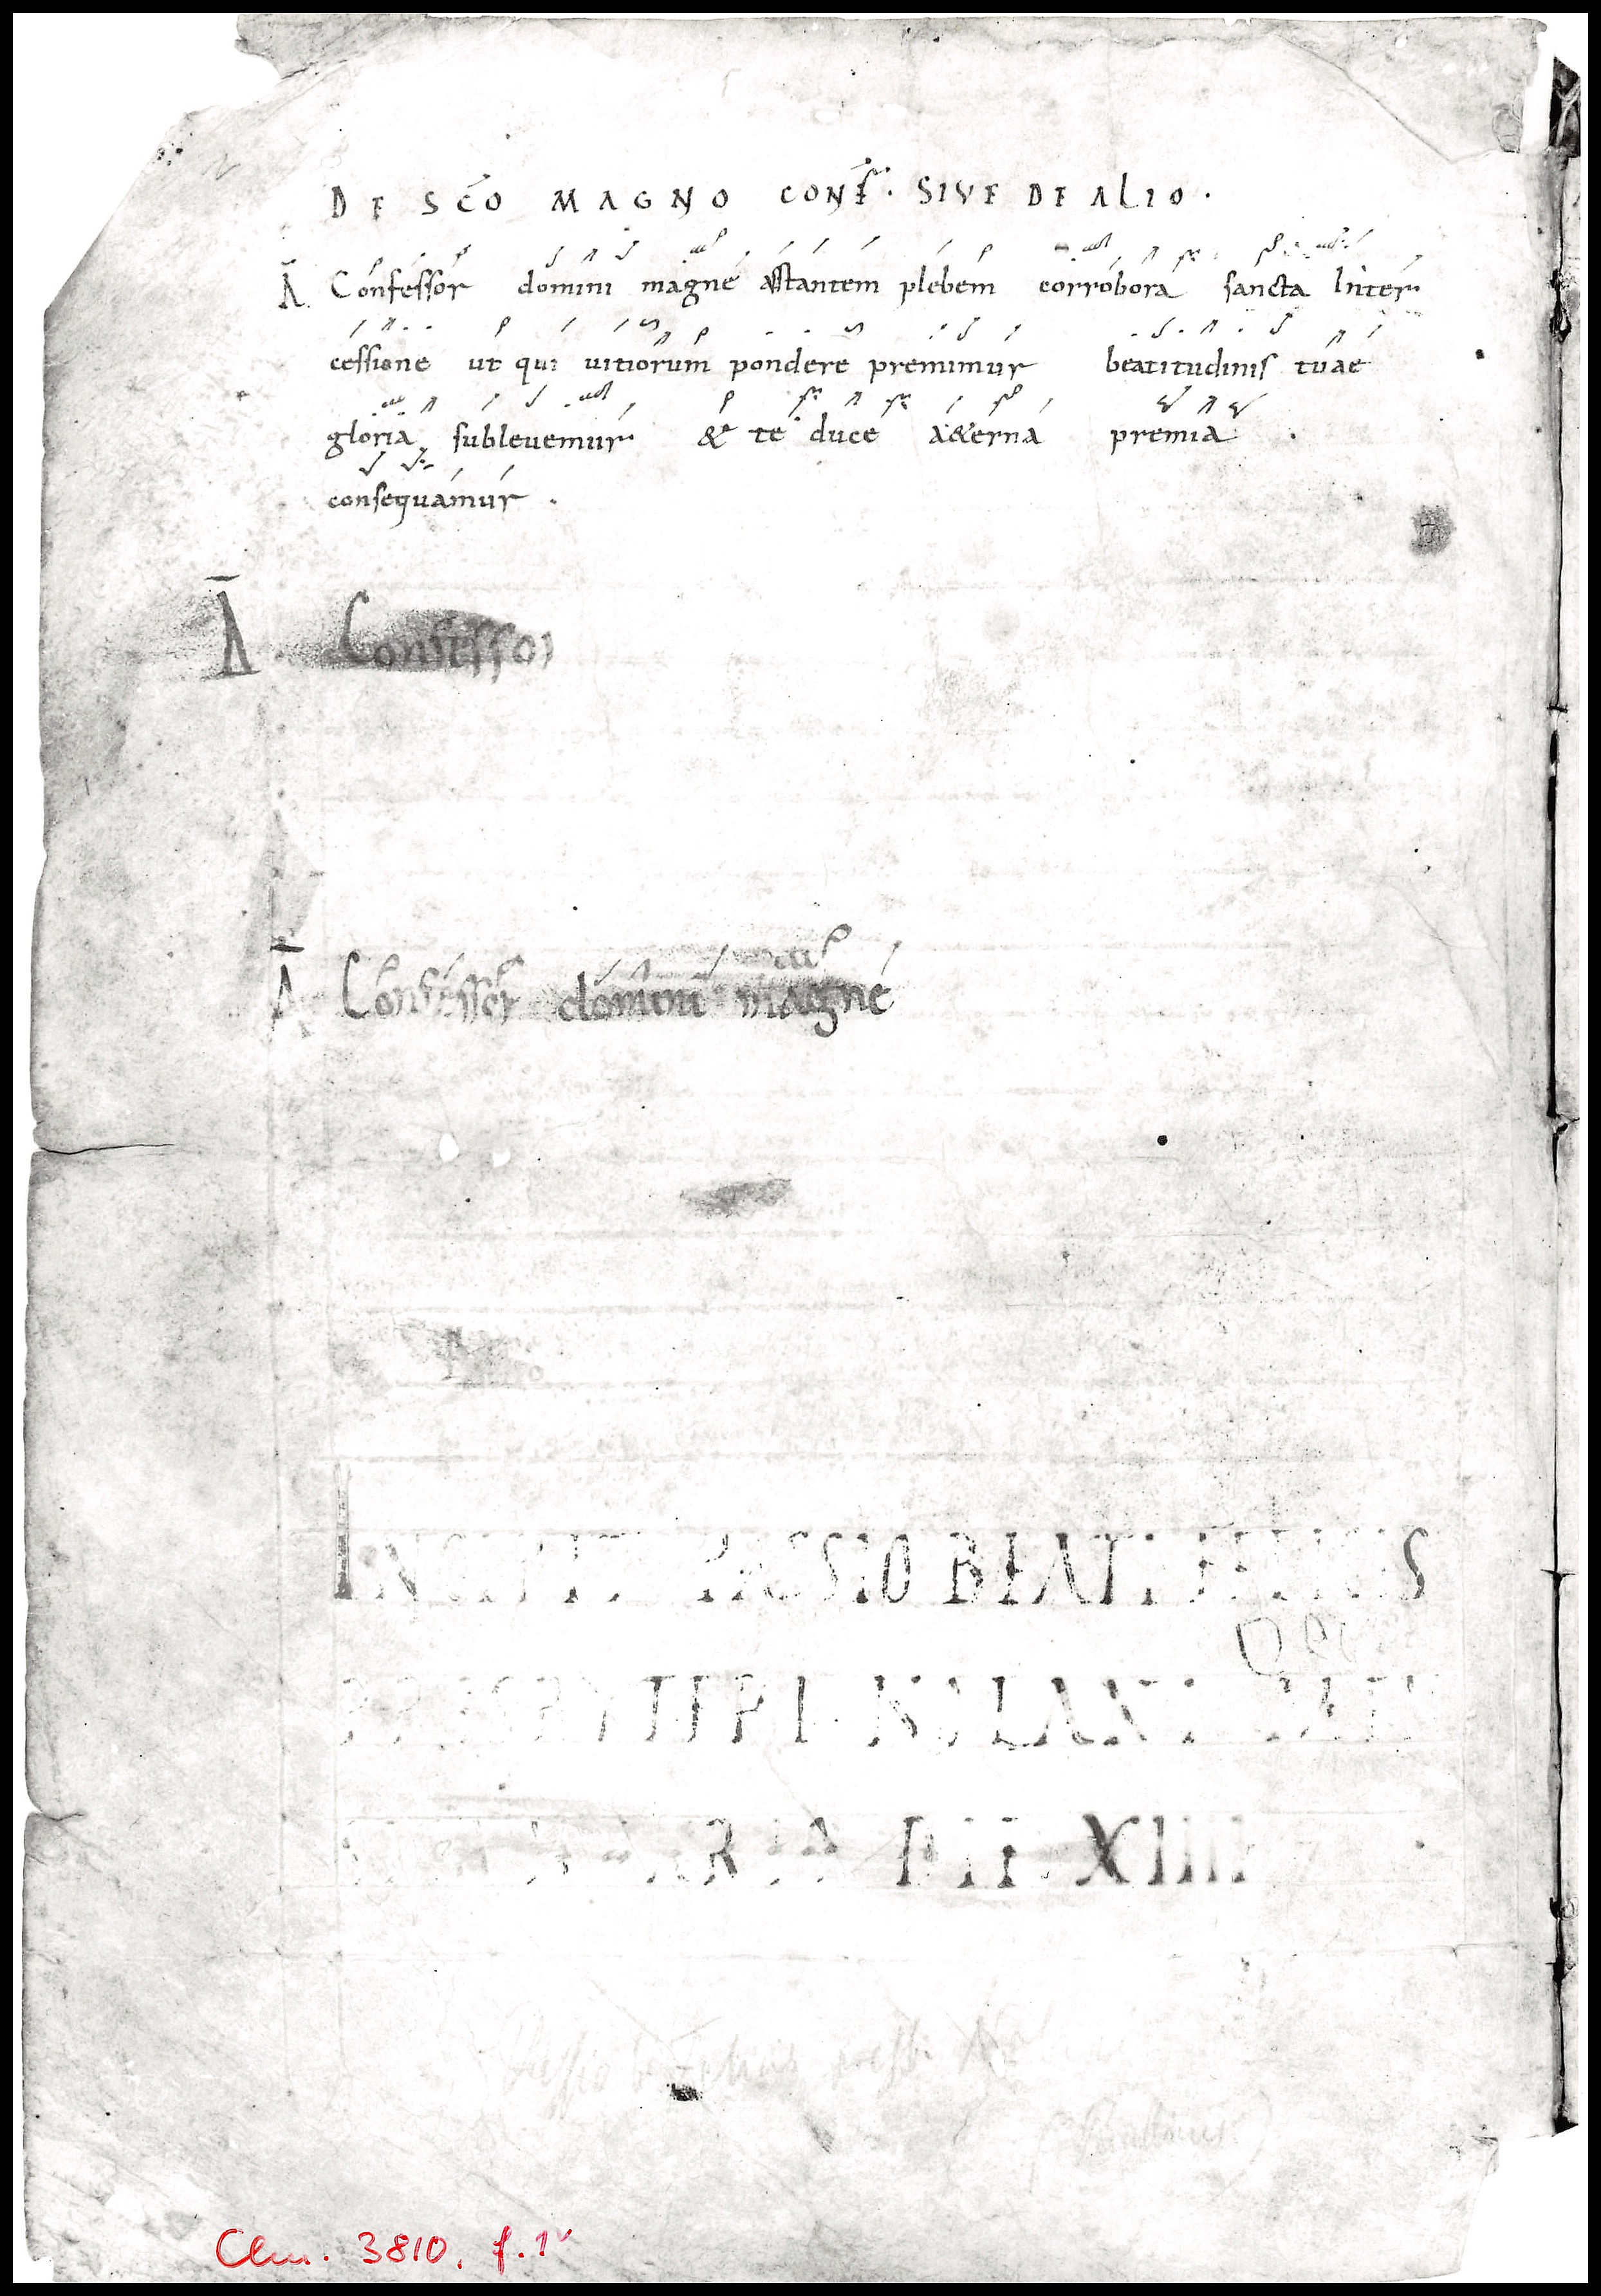 DE SC̄O MAGNO CONF̄. SIVE DE ALIO.
Ā Confessor domini magne astantem plebem corrobora sancta Inter
cessione ut qui uitiorum pondere premimur beatitudinis tuae
gloria subleuemur & te duce a&erna premia
consequamur.
Ā. Confessor
Ā Confessor domini magne
INCIPIT PASSIO BEATI FELICIS
PRESBYTERI NOLANI
DIE XIIII
Passio b. Felicis presb.
Clm. 3810, f. 1v